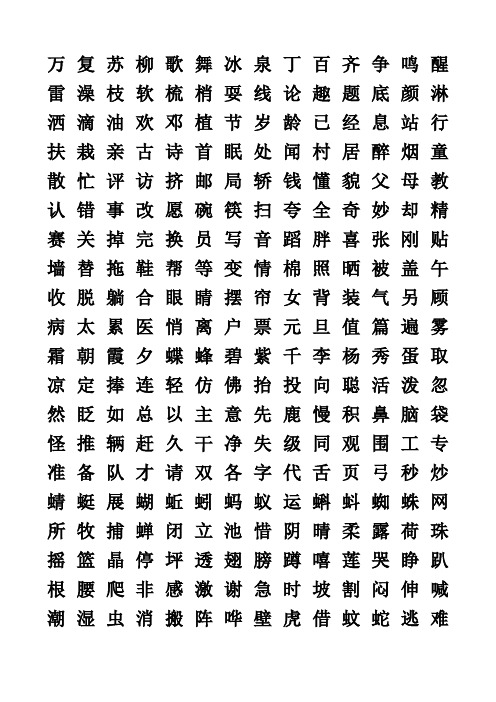 万 复 苏 柳 歌 舞 冰 泉 丁 百 齐 争 鸣 醒
雷 澡 枝 软 梳 梢 耍 线 论 趣 题 底 颜 淋
洒 滴 油 欢 邓 植 节 岁 龄 己 经 息 站 行
扶 栽 亲 古 诗 首 眠 处 闻 村 居 醉 烟 童
散 忙 评 访 挤 邮 局 轿 钱 懂 貌 父 母 教
认 错 事 改 愿 碗 筷 扫 夸 全 奇 妙 却 精
赛 关 掉 完 换 员 写 音 蹈 胖 喜 张 刚 贴
墙 替 拖 鞋 帮 等 变 情 棉 照 晒 被 盖 午
收 脱 躺 合 眼 睛 摆 帘 女 背 装 气 另 顾
病 太 累 医 悄 离 户 票 元 旦 值 篇 遍 雾
霜 朝 霞 夕 蝶 蜂 碧 紫 千 李 杨 秀 蛋 取
凉 定 捧 连 轻 仿 佛 抬 投 向 聪 活 泼 忽
然 眨 如 总 以 主 意 先 鹿 慢 积 鼻 脑 袋
怪 推 辆 赶 久 干 净 失 级 同 观 围 工 专
准 备 队 才 请 双 各 字 代 舌 页 弓 秒 炒
蜻 蜓 展 蝴 蚯 蚓 蚂 蚁 运 蝌 蚪 蜘 蛛 网
所 牧 捕 蝉 闭 立 池 惜 阴 晴 柔 露 荷 珠
摇 篮 晶 停 坪 透 翅 膀 蹲 嘻 莲 哭 睁 趴
根 腰 爬 非 感 激 谢 急 时 坡 割 闷 伸 喊
潮 湿 虫 消 搬 阵 哗 壁 虎 借 蚊 蛇 逃 难